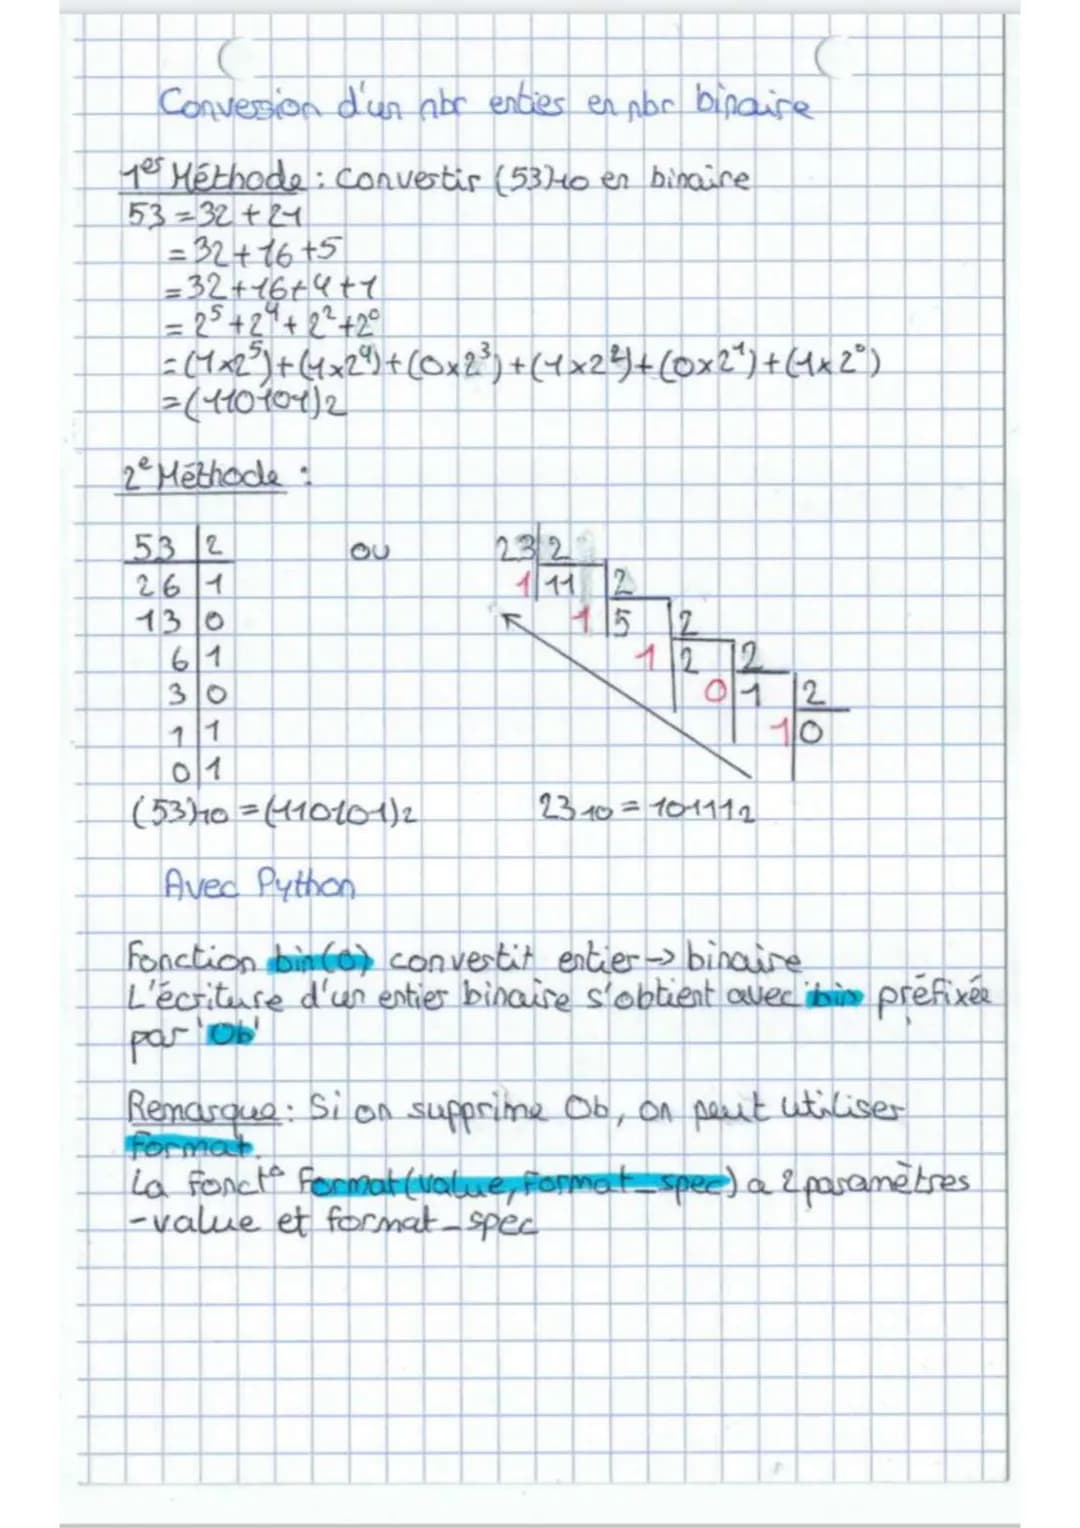 Conversion d'un nbr entier en nbr binaire
1er Méthode : Convertir (53)10 en binaire
53 = 32 + 21
= 32 + 16 + 5
= 32 + 16 + 4 + 1
= 2⁵ + 2⁴ + 2² + 2⁰
= (1x2⁵) + (1x2⁴) + (0x2³) + (1x2²) + (0x2¹) + (1x2⁰)
= (110101)2
2e Méthode :
53 | 2
26 | 1
13 | 0
6 | 1
3 | 0
1 | 1
0 | 1
(53)10 = (110101)2
ou
23 | 2
1 | 11 | 2
1 | 5 | 2
1 | 2 | 2
0 | 1 | 2
1 | 0
23 10 = 10111 2
Avec Python
Fonction bin(a) convertit entier → binaire
L'écriture d'un entier binaire s'obtient avec bin préfixée
par '0b'
Remarque : Si on supprime 0b, on peut utiliser
format.
La fonct° format(value, format_spec) a 2 paramètres
-value et format_spec